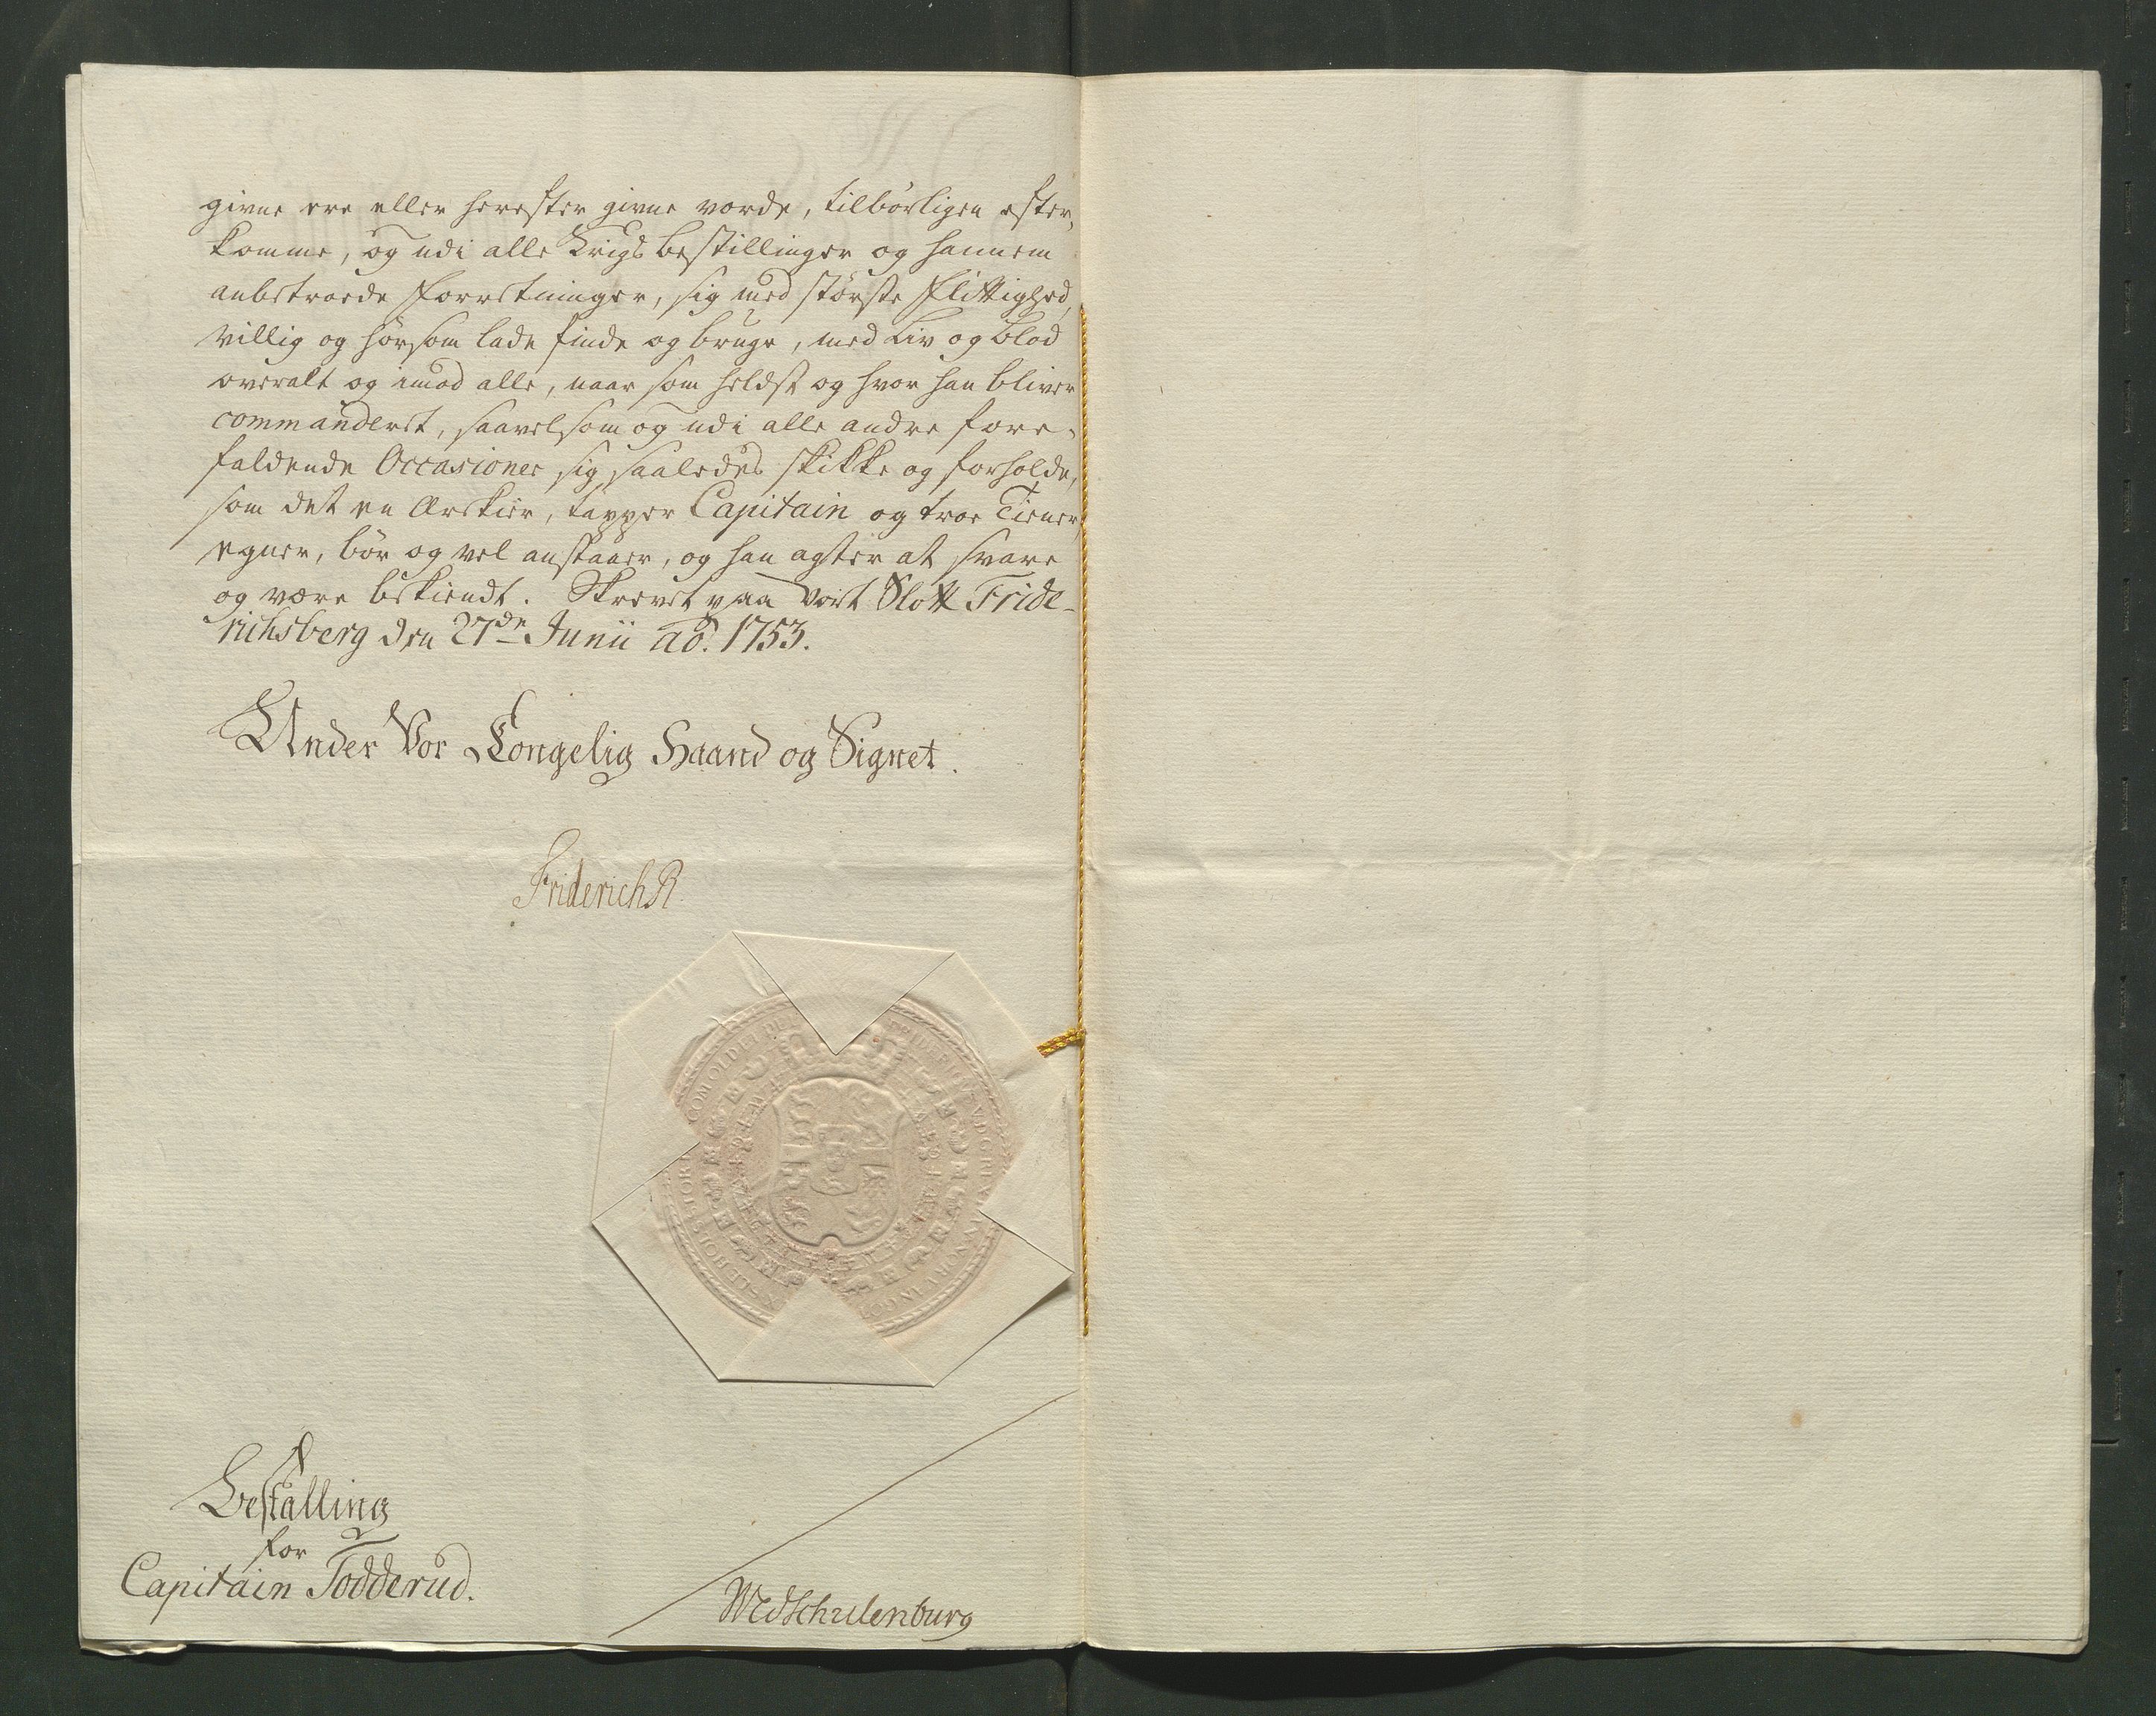 givne ere eller herefter givne vorde, tilbörligen efter-
komme, og udi alle Krigs bestillinger og hannem
anbetroede Forretninger, sig med störste Flittighed,
villig og hörsom lade finde og bruge, med Liv og Blod
overalt og imod alle, naar som heldst og hvor han bliver
commanderet, saavelsom og udi alle andre fore-
faldende Occasioner sig saaledes skikke og forholde,
som det en Ærekier, tapper Capitain og troe Tiener,
egner, bör og vel anstaaer, og han agter at svare
og være bekiendt. Skrevet paa Vort Slott Fride-
richsberg den 27de Junii aō. 1753.
Under Vor Kongelig Haand og Signet.
Friderich R
Bestalling
for
Capitain Todderud.
WCdSchulenburg